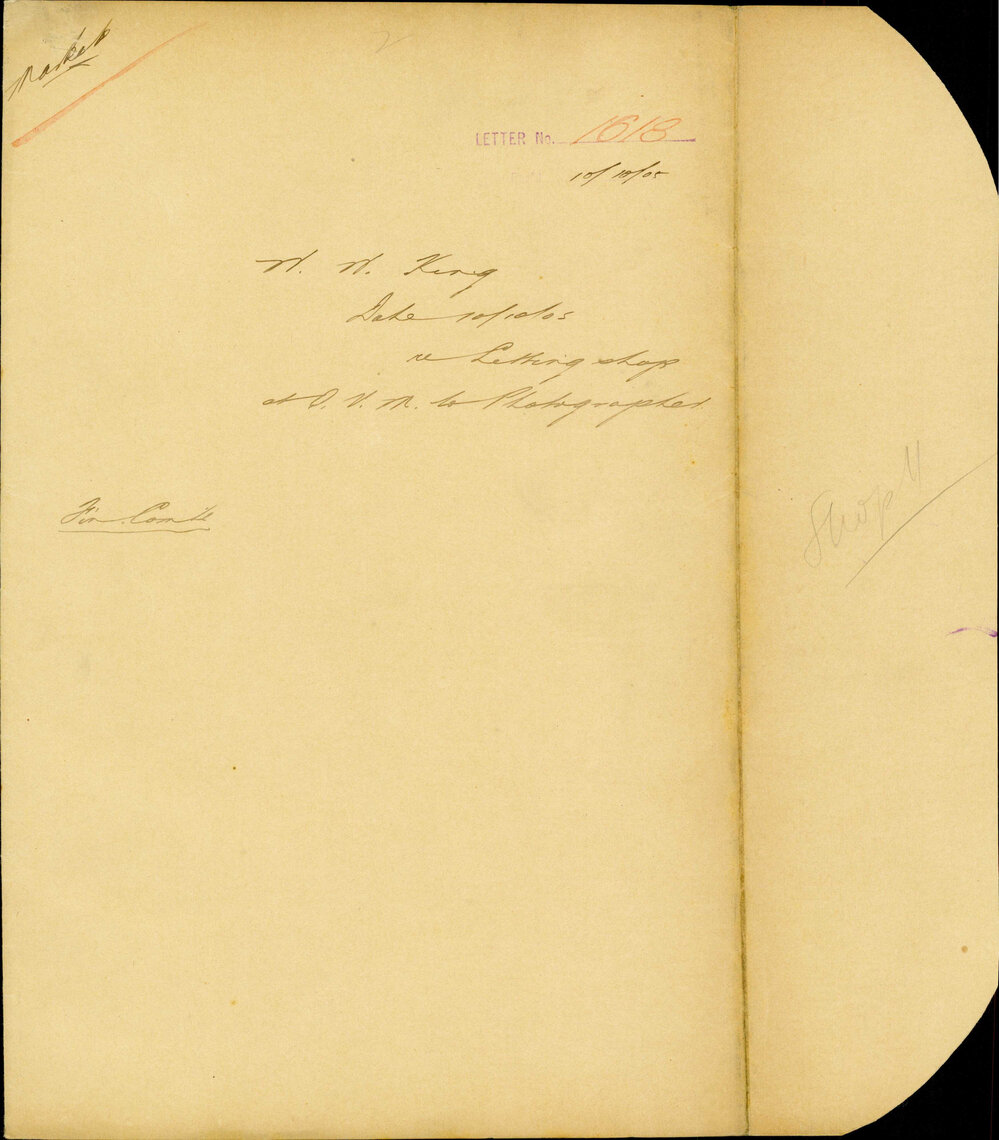 Markets
LETTER No. 1618
10/10/05
W. W. King
Date 10/10/05
re Letting shop
at Q. V. M. to Photographer
Fin. Comtē
Shop 11